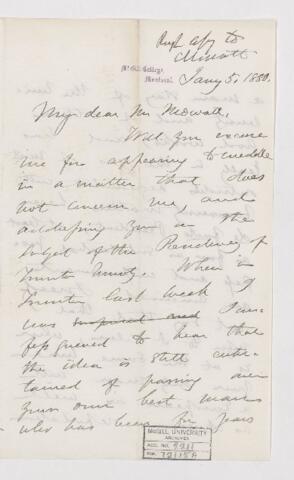 Rough copy to
Mowatt
McGill College,
Montreal.
Jany 5, 1880.
My dear Mr Mowatt,
Will you excuse
me for appearing to meddle
in a matter that does
not concern me, and
addressing you on the
subject of the Presidency of
Toronto Univty. When in
Toronto last week I
was surprised and I con-
fess grieved to hear that
the idea is still enter-
tained of passing over
your own best man
who has been for years
McGILL UNIVERSITY
ARCHIVES
ACC. NO.
REF.